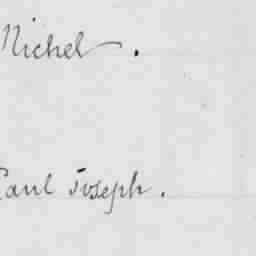 Michel.
Paul Joseph.